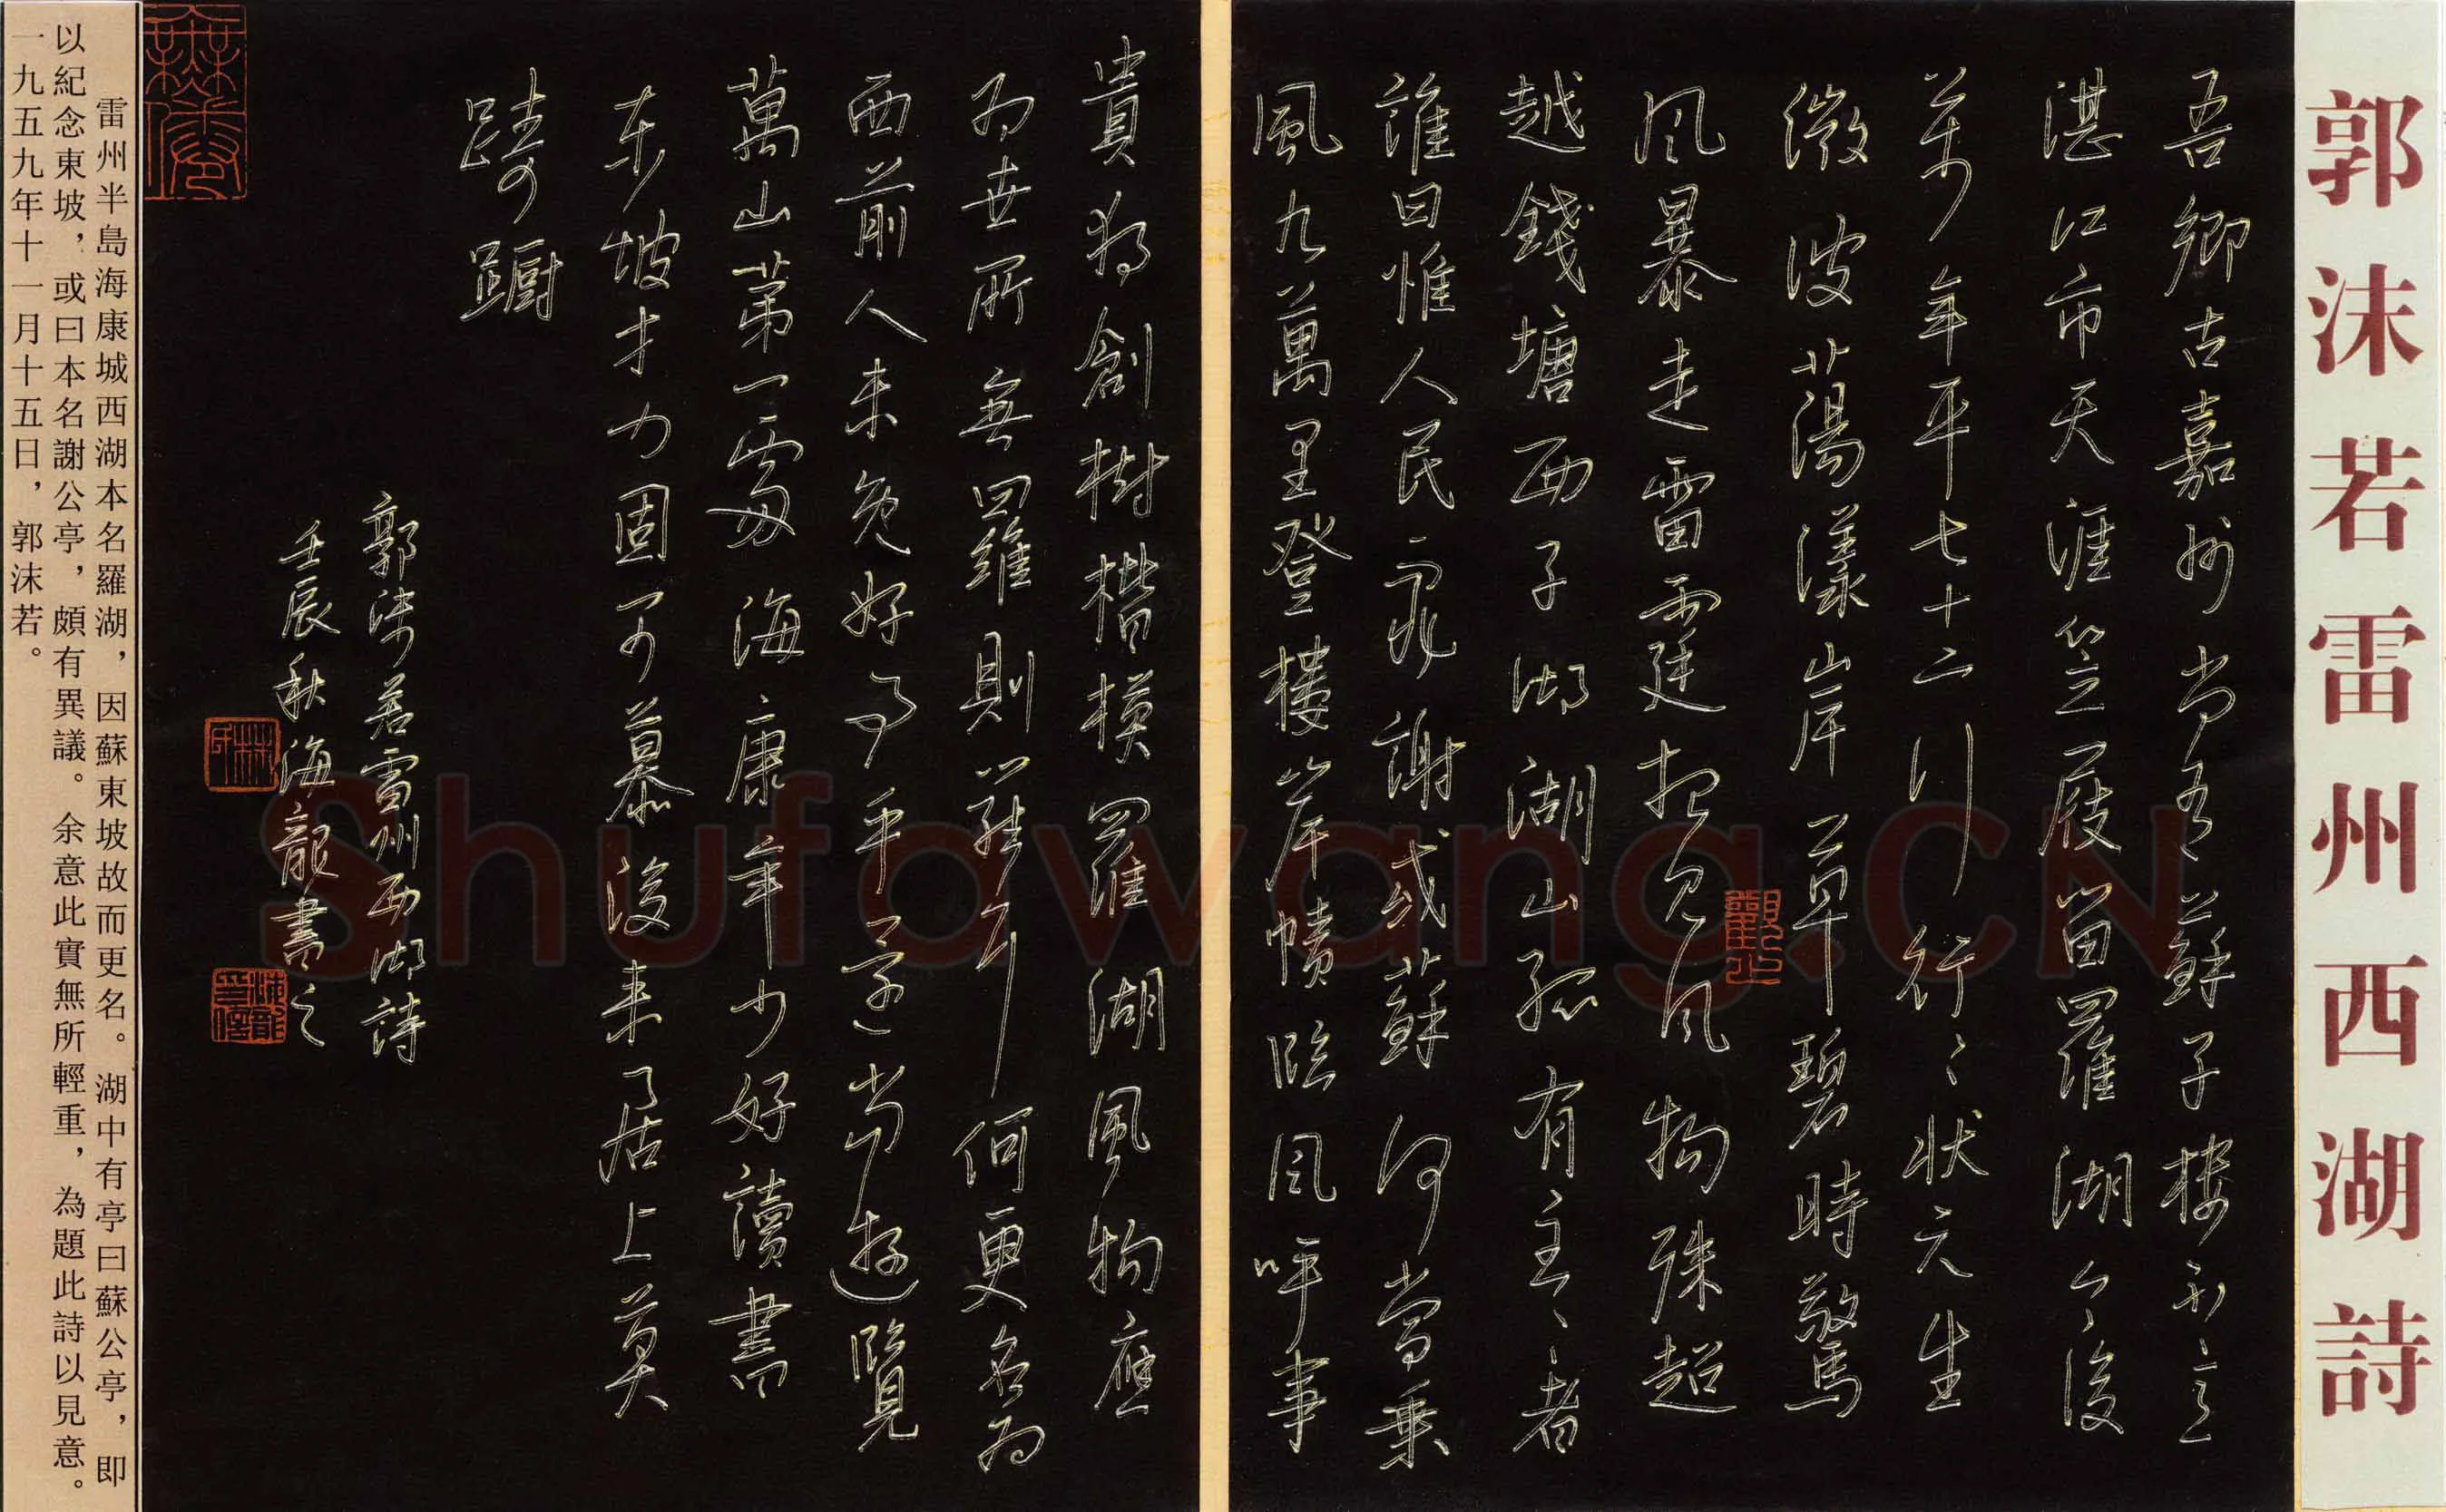 郭沫若雷州西湖詩
吾鄉古嘉州尚有蘇子樓不意
湛江市天涯笠屐留羅湖今後
萬年平七十二川行行狀元生
微波蕩漾岸草碧時驚
風暴走雷霆抱見風物殊超
越錢塘西子湖湖山孤有主主者
誰曰惟人民寇謝或蘇何嘗乘
風九萬里登樓岸幘臨風呼事
貴獨創樹楷模羅湖風物應
為世所無四維則羅耳何更名為
西前人未免好事乎亭尚遊覽
萬山第一處海康年少好讀書
東坡才力固可慕後來居上莫
踌躕
郭沫若雷州西湖詩
壬辰秋海龍書之
雷州半島海康城西湖本名羅湖，因蘇東坡故而更名。湖中有亭曰蘇公亭，即
以紀念東坡，或曰本名謝公亭，頗有異議。余意此實無所輕重，為題此詩以見意。
一九五九年十一月十五日，郭沫若。
Shufawang.CN